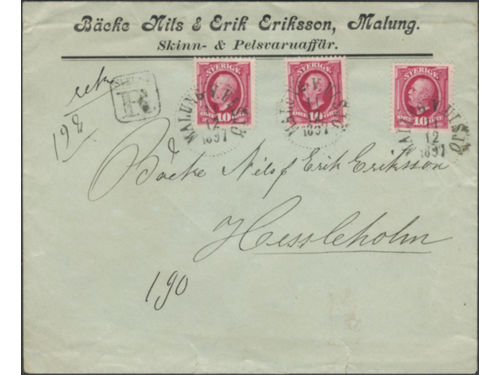 Bäcke Nils & Erik Eriksson, Malung.
Skinn- & Pelsvaruaffär.
SVERIGE SVERIGE SVERIGE
10 10 10
ÖRE ÖRE ÖRE
MALUNG
12
1897
R
198
Bäcke Nils & Erik Eriksson
Hessleholm
190